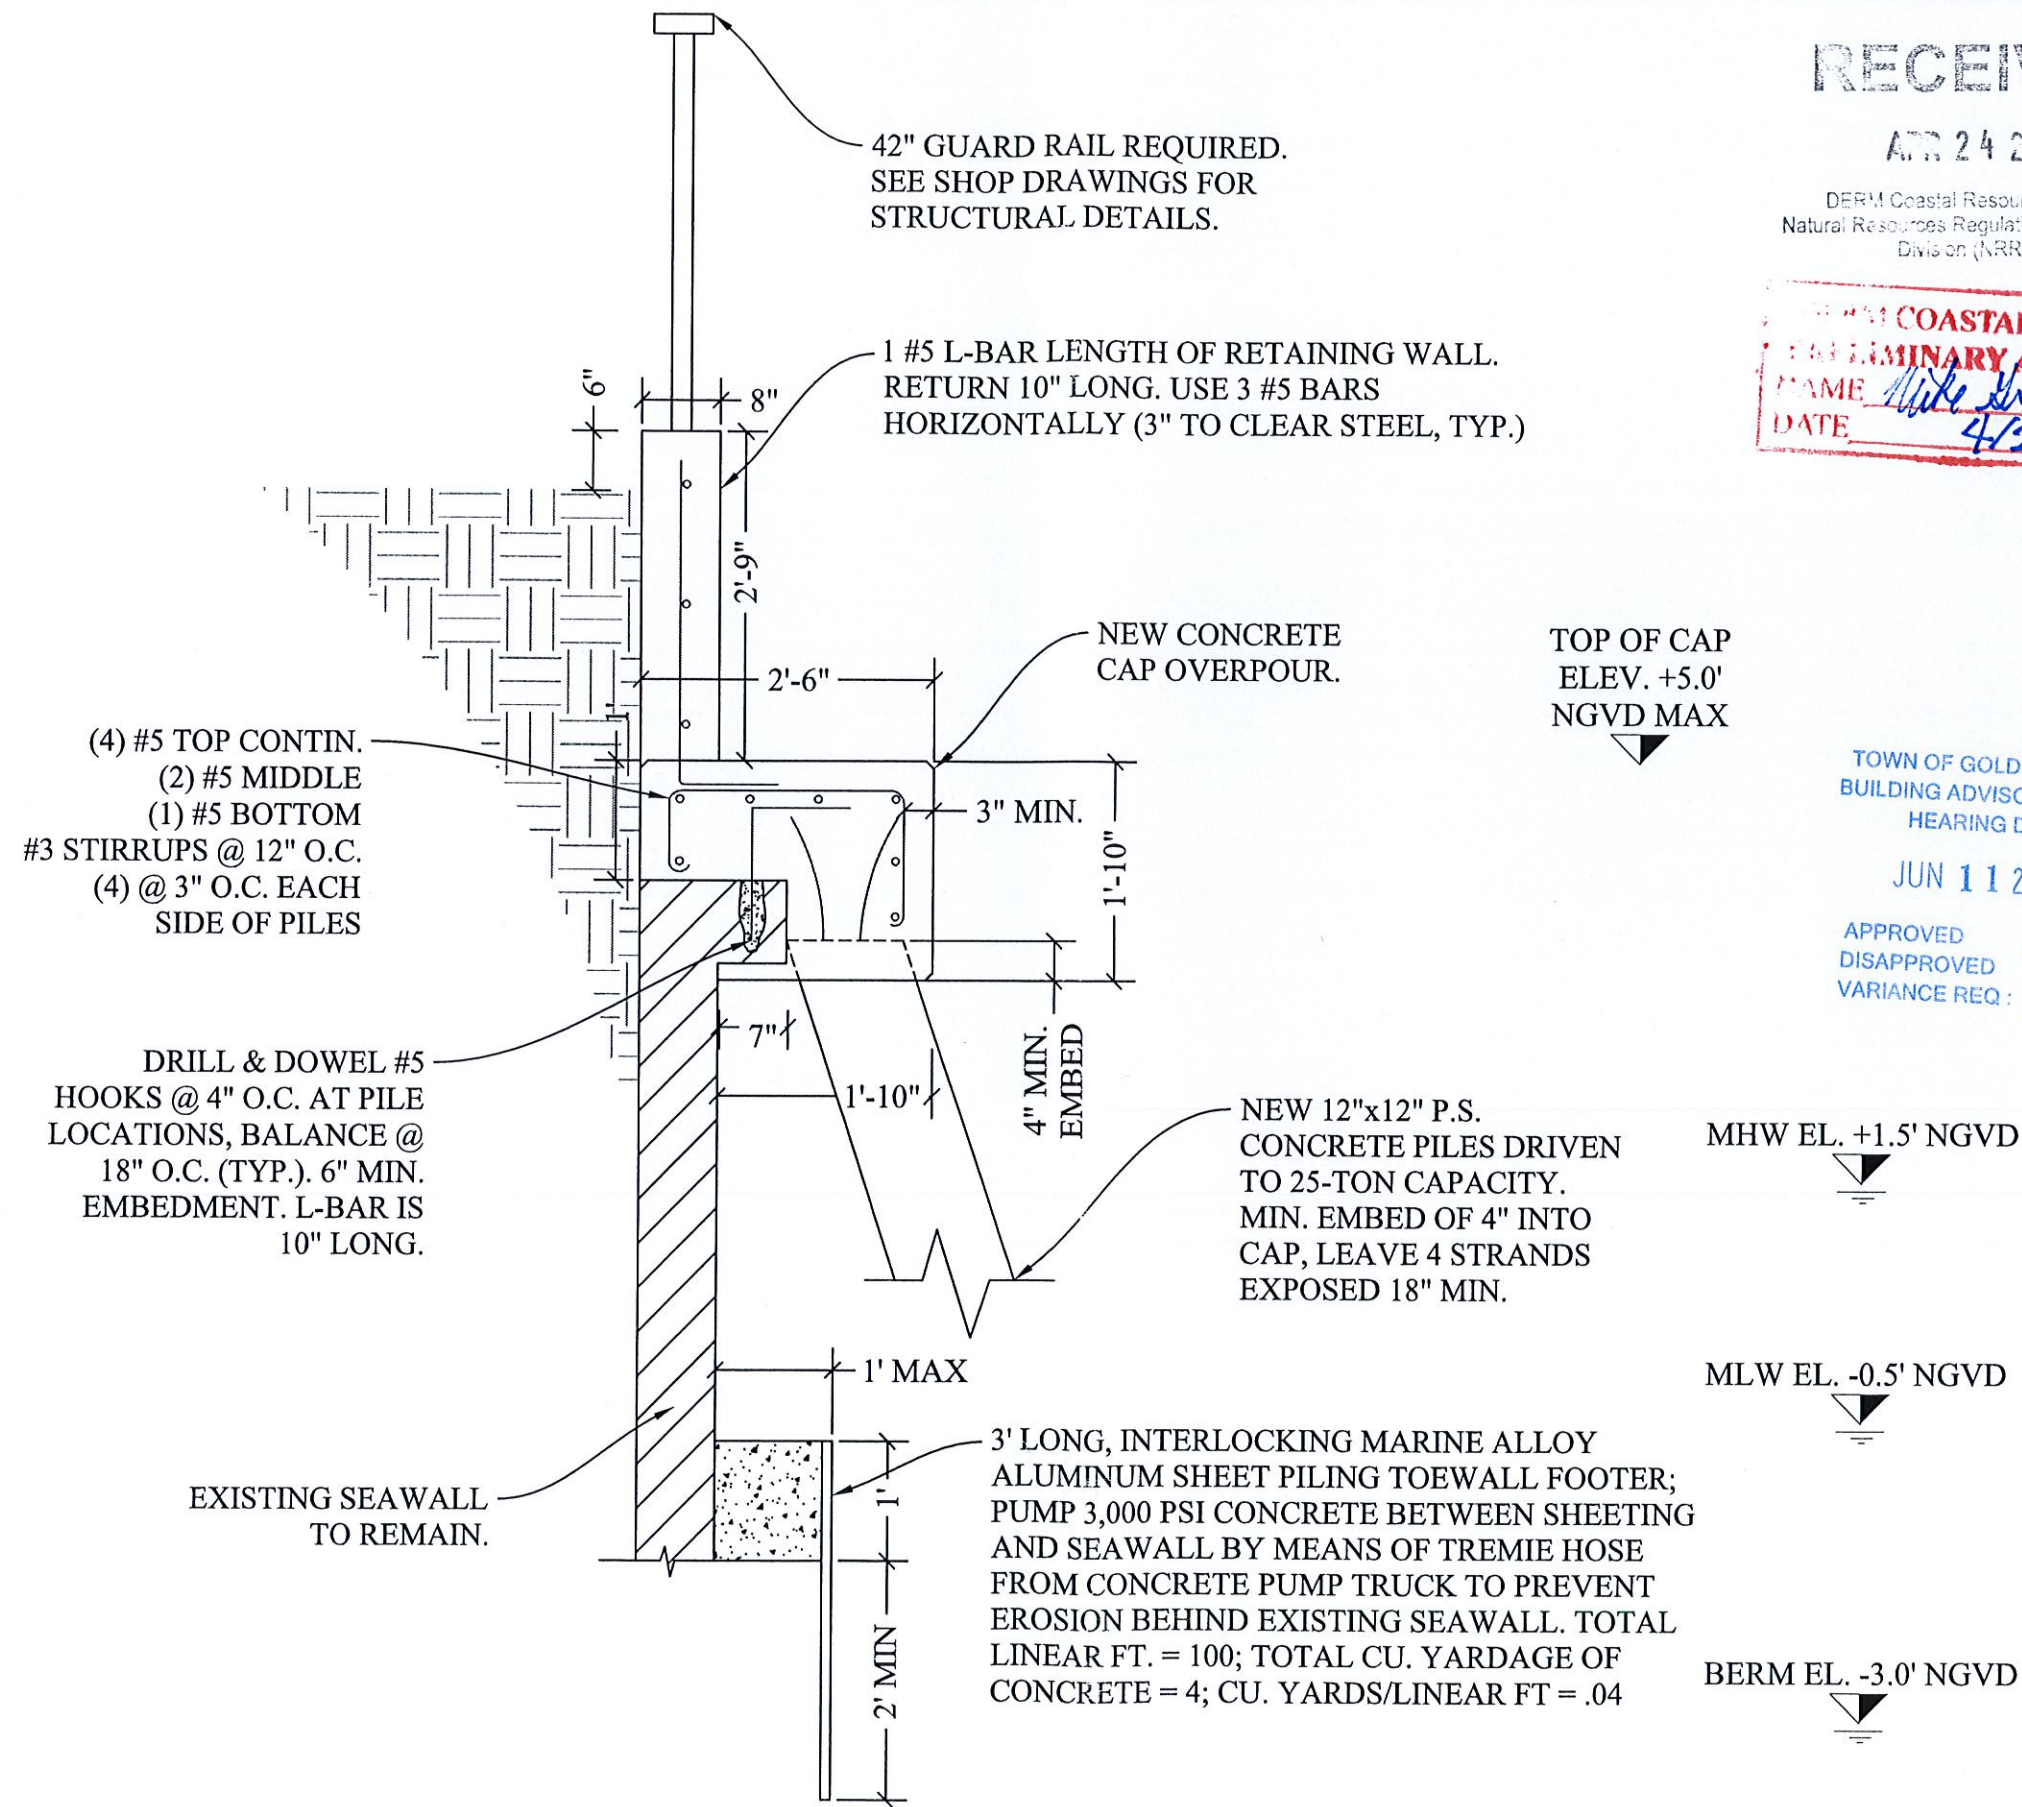 RECEIV
APR 24 2
DERM Coastal Resou
Natural Resources Regulat
Division (NRR
COASTAL
NAME Mike
DATE 4/3
42" GUARD RAIL REQUIRED.
SEE SHOP DRAWINGS FOR
STRUCTURAL DETAILS.
1 #5 L-BAR LENGTH OF RETAINING WALL.
RETURN 10" LONG. USE 3 #5 BARS
HORIZONTALLY (3" TO CLEAR STEEL, TYP.)
6"
8"
2'-9"
2'-6"
NEW CONCRETE
CAP OVERPOUR.
TOP OF CAP
ELEV. +5.0'
NGVD MAX
1'
(4) #5 TOP CONTIN.
(2) #5 MIDDLE
(1) #5 BOTTOM
#3 STIRRUPS @ 12" O.C.
(4) @ 3" O.C. EACH
SIDE OF PILES
3" MIN.
1'-10"
TOWN OF GOLD
BUILDING ADVISO
HEARING D
JUN 11 2
APPROVED
DISAPPROVED
VARIANCE REQ :
DRILL & DOWEL #5
HOOKS @ 4" O.C. AT PILE
LOCATIONS, BALANCE @
18" O.C. (TYP.). 6" MIN.
EMBEDMENT. L-BAR IS
10" LONG.
7"
1'-10"
4" MIN.
EMBED
NEW 12"x12" P.S.
CONCRETE PILES DRIVEN
TO 25-TON CAPACITY.
MIN. EMBED OF 4" INTO
CAP, LEAVE 4 STRANDS
EXPOSED 18" MIN.
MHW EL. +1.5' NGVD
1' MAX
MLW EL. -0.5' NGVD
EXISTING SEAWALL
TO REMAIN.
1'
2' MIN
3' LONG, INTERLOCKING MARINE ALLOY
ALUMINUM SHEET PILING TOEWALL FOOTER;
PUMP 3,000 PSI CONCRETE BETWEEN SHEETING
AND SEAWALL BY MEANS OF TREMIE HOSE
FROM CONCRETE PUMP TRUCK TO PREVENT
EROSION BEHIND EXISTING SEAWALL. TOTAL
LINEAR FT. = 100; TOTAL CU. YARDAGE OF
CONCRETE = 4; CU. YARDS/LINEAR FT = .04
BERM EL. -3.0' NGVD